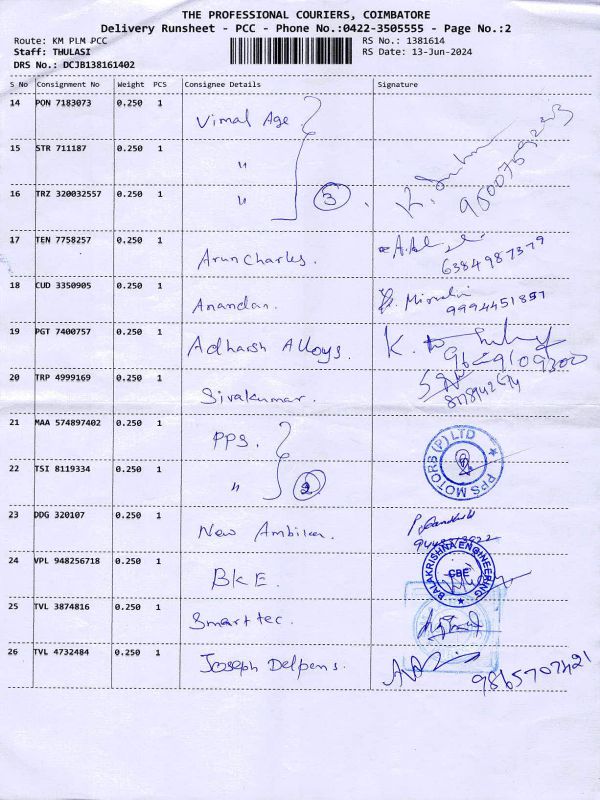 THE PROFESSIONAL COURIERS, COIMBATORE
Delivery Runsheet - PCC - Phone No.:0422-3505555 - Page No.:2
Route: KM PLM PCC RS No.: 1381614
Staff: THULASI RS Date: 13-Jun-2024
DRS No.: DCJB138161402
S No Consignment No Weight PCS Consignee Details Signature
14 PON 7183073 0.250 1 Vimal Age
15 STR 711187 0.250 1 "
16 TRZ 320032557 0.250 1 " 3
17 TEN 7758257 0.250 1 Arun Charles.
6384987379
18 CUD 3350905 0.250 1 Anandan.
9994451897
19 PGT 7400757 0.250 1 Adharsh Alloys. K.
9629109300
20 TRP 4999169 0.250 1 Sivakumar.
21 MAA 574897402 0.250 1 PPS.
22 TSI 8119334 0.250 1 " 2
PPS MOTORS (P) LTD
23 DDG 320107 0.250 1 New Ambika.
24 VPL 948256718 0.250 1 BKE.
BALAKRISHNA ENGINEERING
CBE
25 TVL 3874816 0.250 1 Smarttec.
26 TVL 4732484 0.250 1 Joseph Delpens.
9865707421